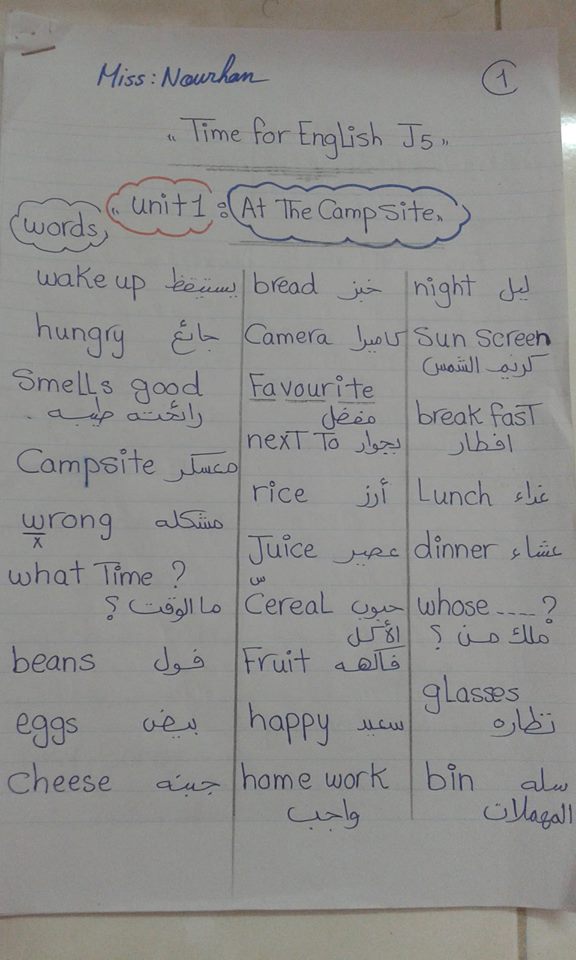 Miss: Nourhan
1
" Time for English J5 "
" unit1 : At The Campsite "
words
wake up يستيقظ
hungry جائع
Smells good
رائحته طيبه .
Campsite معسكر
wrong مشكله
x
what Time ?
ما الوقت ؟
beans فول
eggs بيض
cheese جبنه
bread خبز
Camera كاميرا
Favourite
مفضل
nexT To بجوار
rice أرز
Juice عصير
س
Cereal حبوب
الأكل
Fruit فاكهه
happy سعيد
home work
واجب
night ليل
Sun Screen
كريم الشمس
break fasT
افطار
Lunch غداء
dinner عشاء
whose ----?
ملك من ؟
glasses
نظاره
bin سله
المهملات